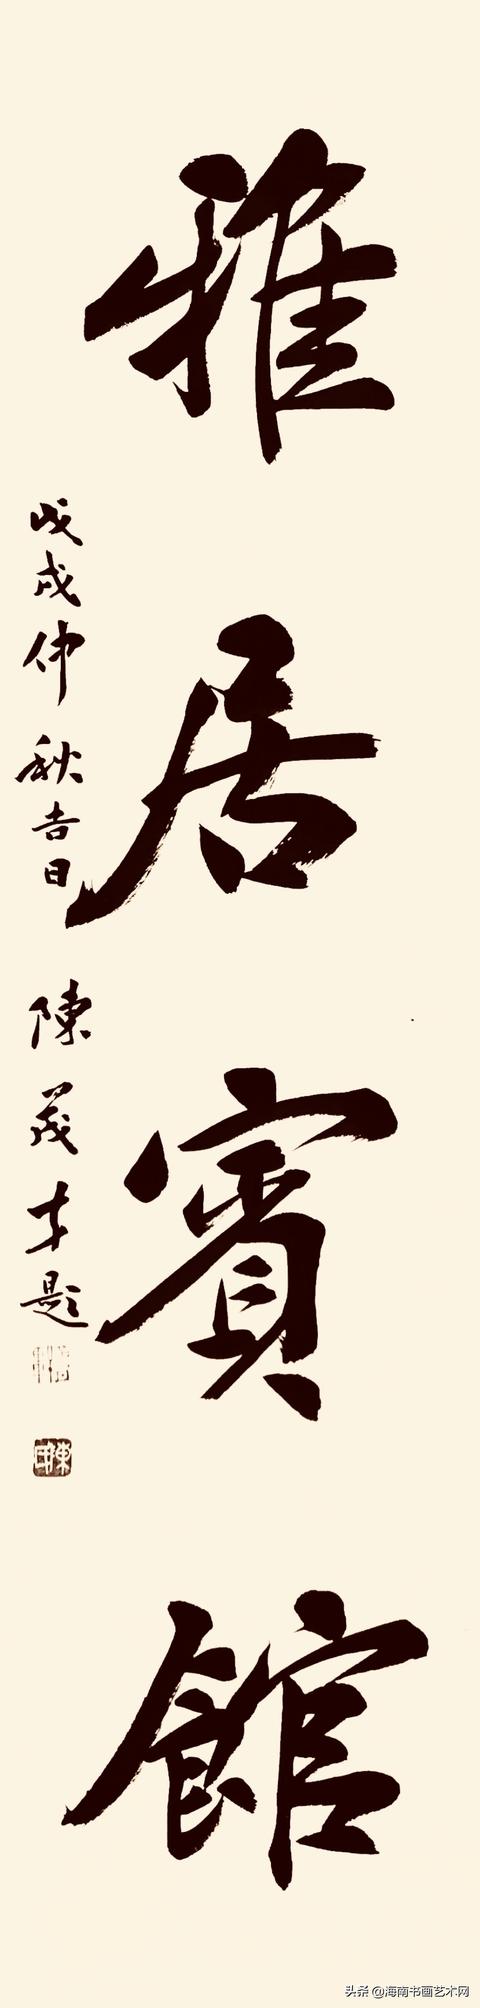 雅居賓館
戊戌仲秋吉日 陳茂才題
头条 @海南书画艺术网